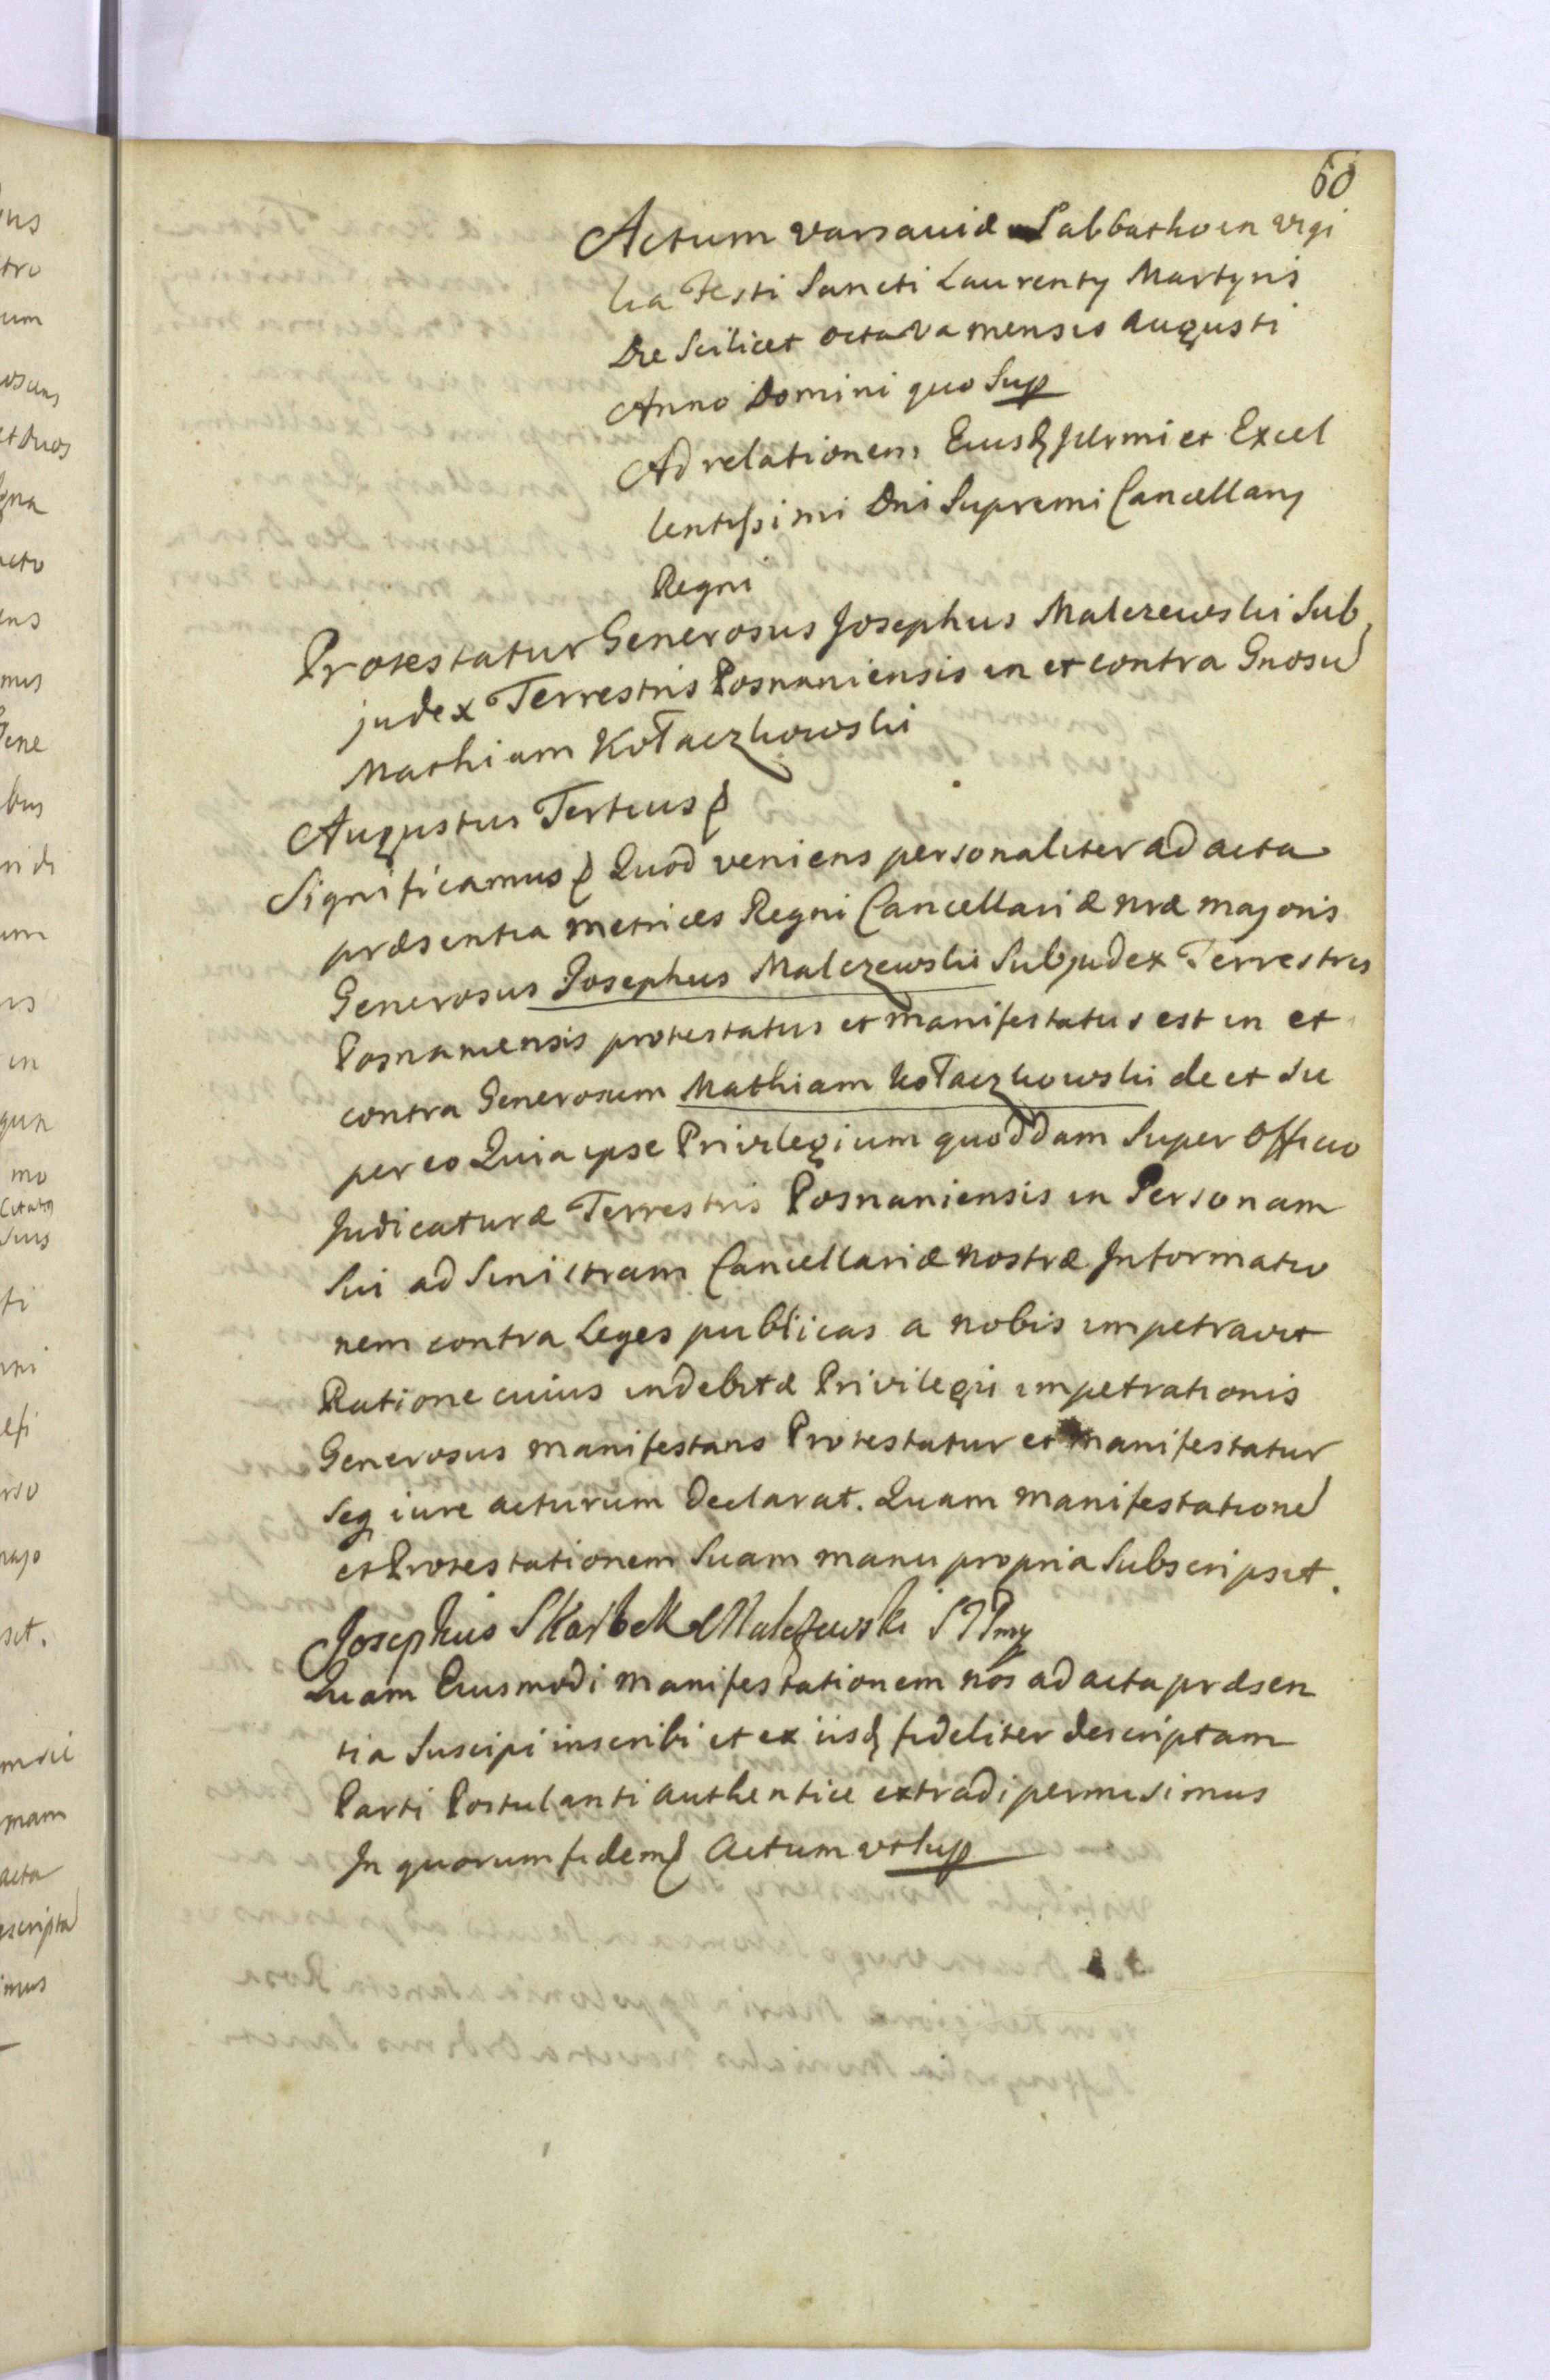 60
Actum Varsaviæ Sabbatho in Vigi
lia Festi Sancti Laurentÿ Martyris
Die Scilicet octava mensis Augusti
Anno Domini quo Sup
Ad relationem Eiusq Illrmi et Excel
lentissimi Dni Supremi Cancellarÿ
Regni
Protestatur Generosus Josephus Malczewski Sub
judex Terrestris Posnaniensis in et contra Gnosu
Mathiam Kołaczkowski
Augustus Tertius
Significamus Quod veniens personaliter ad acta
præsentia metrices Regni Cancellariæ nræ majoris
Generosus Josephus Malczewski Subjudex Terrestris
Posnaniensis protestatus et manifestatus est in et
contra Generosum Mathiam Kołaczkowski de et su
per eo Quia ipse Privilegium quoddam Super Officio
Judicaturæ Terrestris Posnaniensis in Personam
Sui ad Sinistram Cancellariæ nostræ Informatio
nem contra Leges publicas a nobis impetravit
Ratione cuius indebitæ Privilegii impetrationis
Generosus manifestans Protestatur et manifestatur
seq iure acturum declarat. Quam manifestatione
et Protestationem Suam manu propria Subscripsit.
Josephus Skarbek Malczewski S P mp
Quam Eiusmodi manifestationem nos ad acta præsen
tia Suscipi inscribi et ex iisq fideliter descriptam
Parti Postulanti authentice extradi permisimus
In quorum fidem Actum ut sup